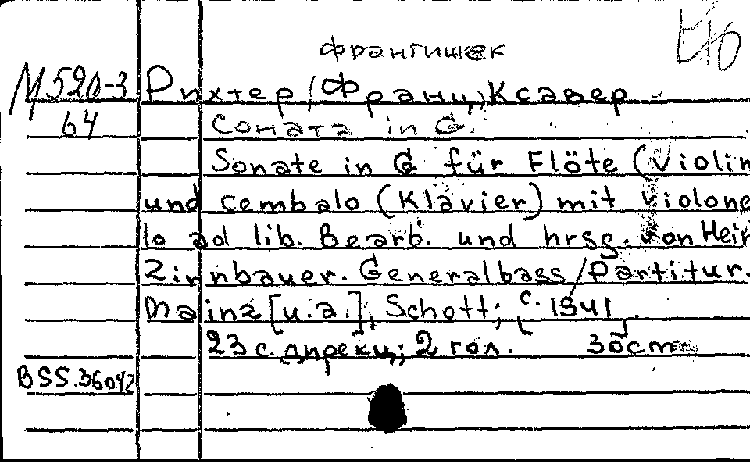 франтишек
М 520-3 Рихтер (Франц) Ксавер
64 Соната in G.
Sonate in G für Flöte (Violin
und cembalo (Klavier) mit violonc
lo ad lib. Bearb. und hrsg. von Hein
Zirnbauer. Generalbass/Partitur.
Mainz [u.a.], Schott; [c. 1941].
23 с. дирекц; 2 гол.
BSS.36042